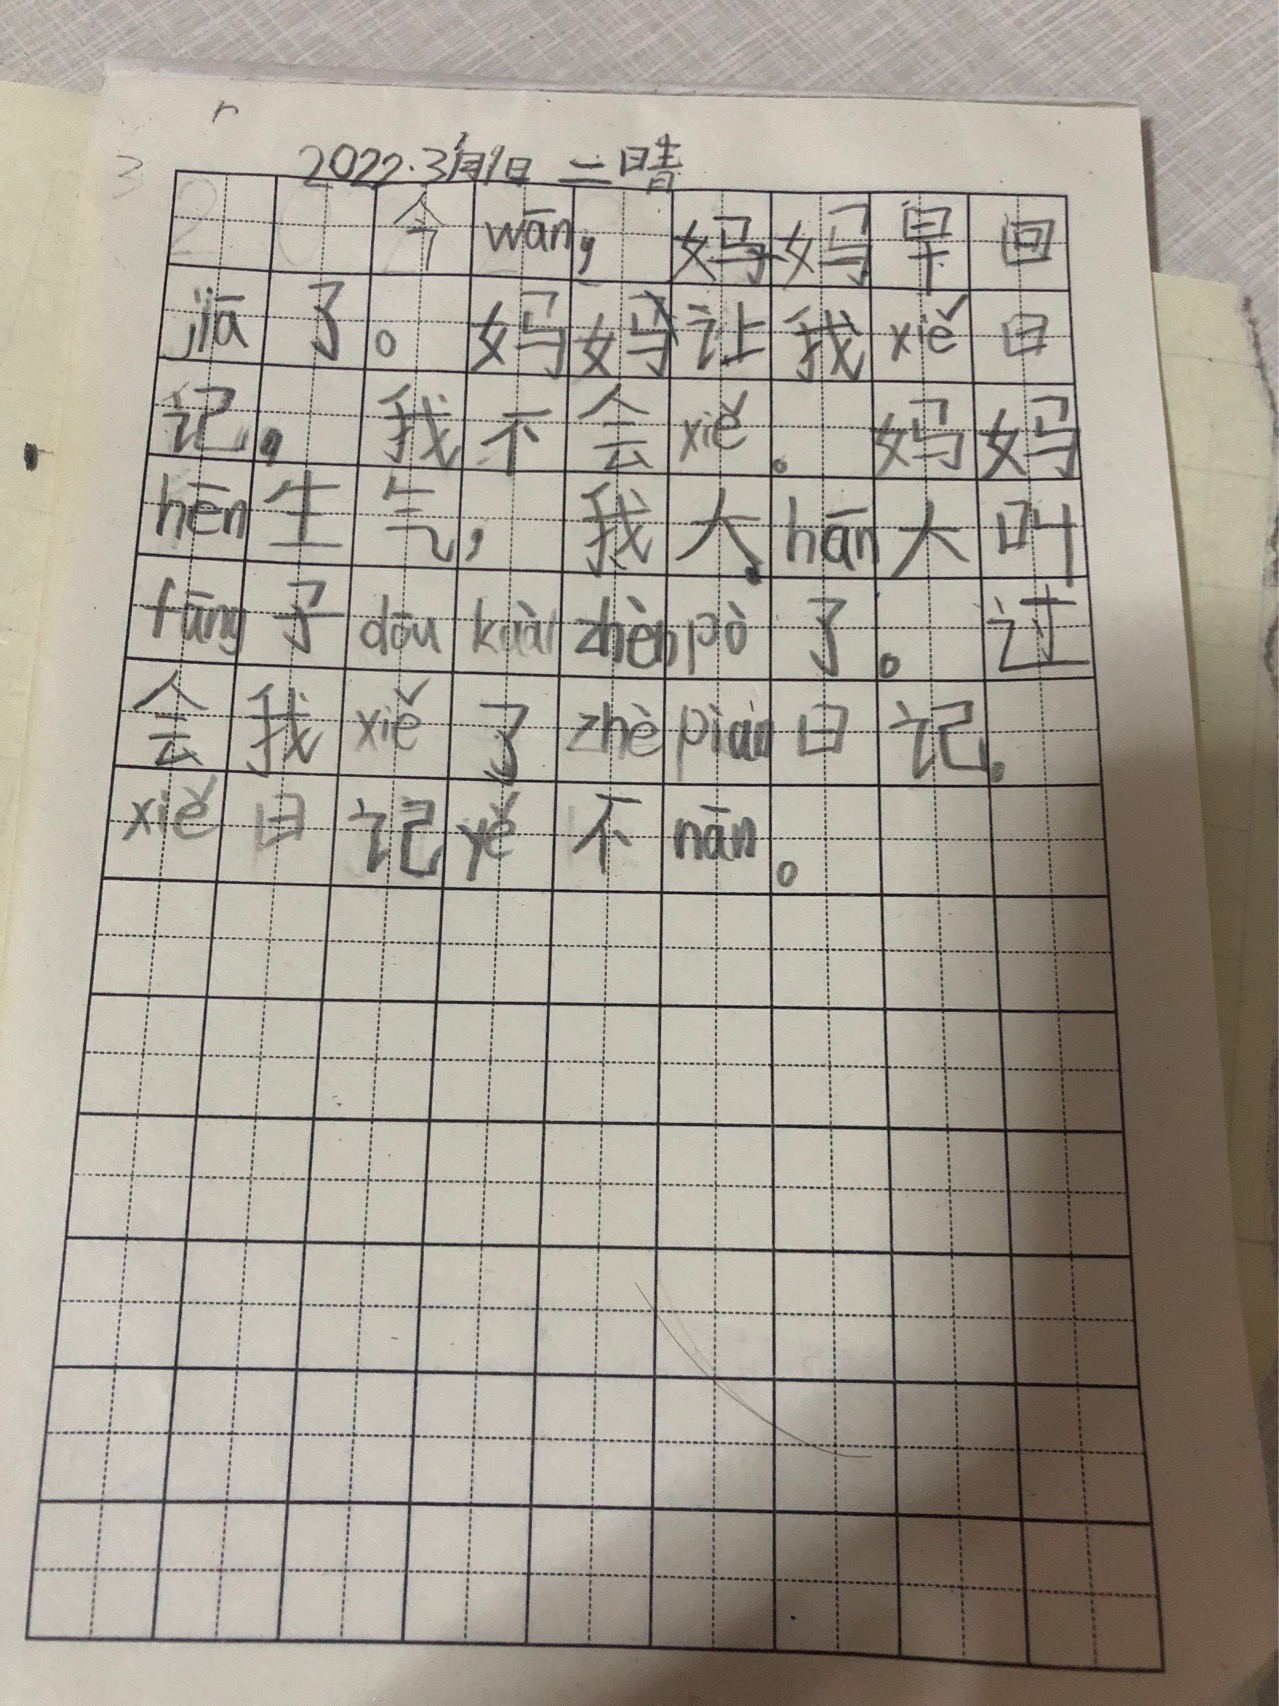 2022.3月1日 二 晴
今wāng, 妈妈早回
jiā了。妈妈让我xiě日
记。我不会xiě。妈妈
hēn生气,我大hān大叫
fāng子dōu kuài zhèn pò了。过
会我xiě了zhè piān日记。
xiě日记yě不nān。